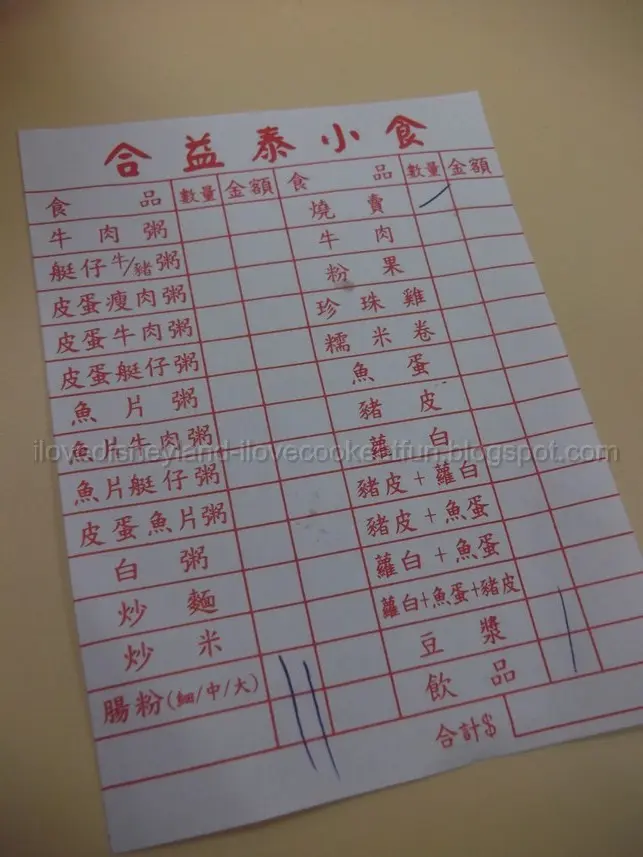 合益泰小食
食品 數量 金額 食品 數量 金額
牛肉粥 燒賣
艇仔牛/豬粥 牛肉
皮蛋瘦肉粥 粉果
皮蛋牛肉粥 珍珠雞
皮蛋艇仔粥 糯米卷
魚片粥 魚蛋
魚片牛肉粥 豬皮
魚片艇仔粥 蘿白
皮蛋魚片粥 豬皮+蘿白
白粥 豬皮+魚蛋
炒麵 蘿白+魚蛋
炒米 蘿白+魚蛋+豬皮
腸粉(細/中/大) 豆漿
飲品
合計$
ilovedisneyland-ilovecookeatfun.blogspot.com